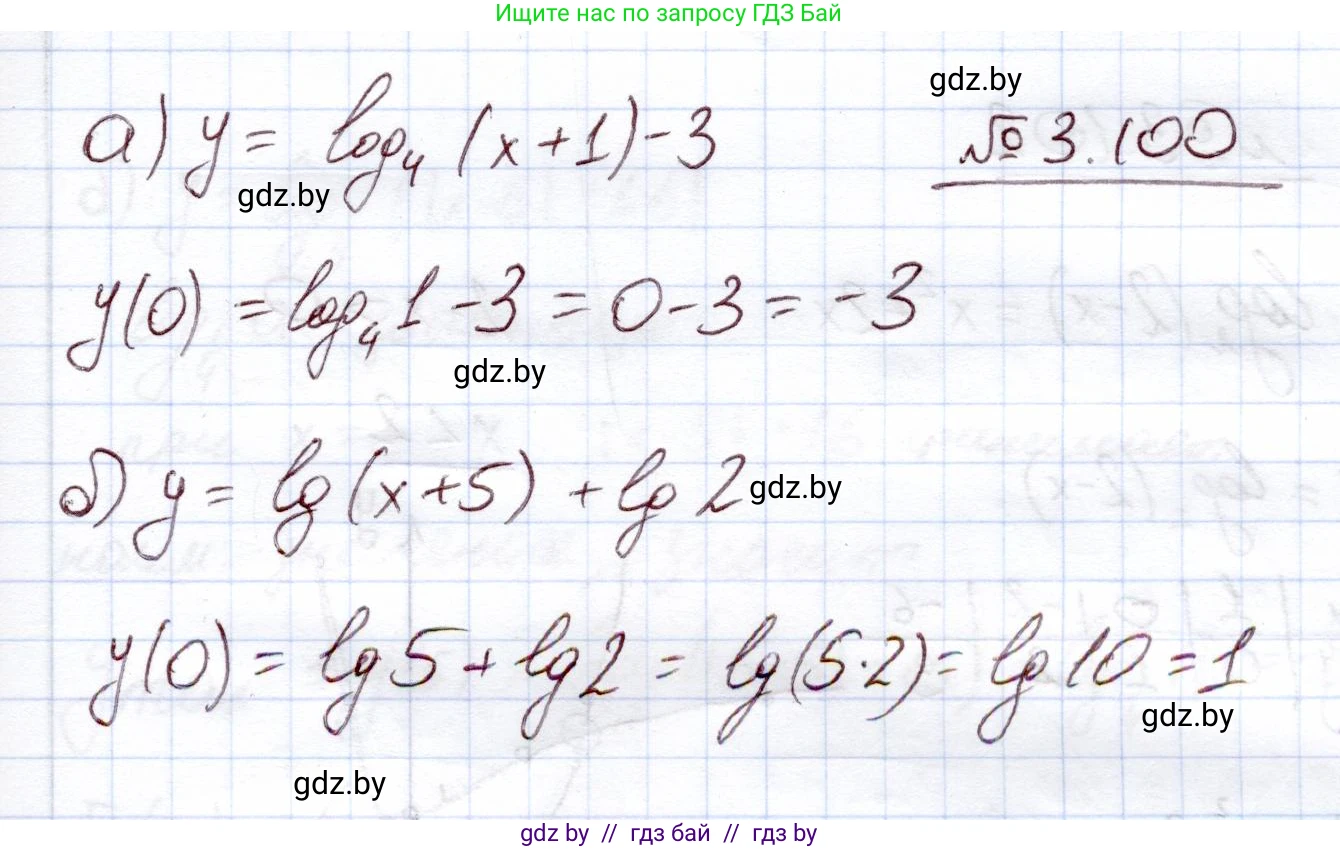 Ищите нас по запросу ГДЗ Бай
gdz.by
а) y = log₄ (x+1) - 3
№ 3.100
gdz.by
y(0) = log₄ 1 - 3 = 0 - 3 = -3
gdz.by
б) y = lg (x+5) + lg 2
gdz.by
y(0) = lg 5 + lg 2 = lg (5·2) = lg 10 = 1
gdz.by
gdz.by
gdz by // гдз бай // гдз by